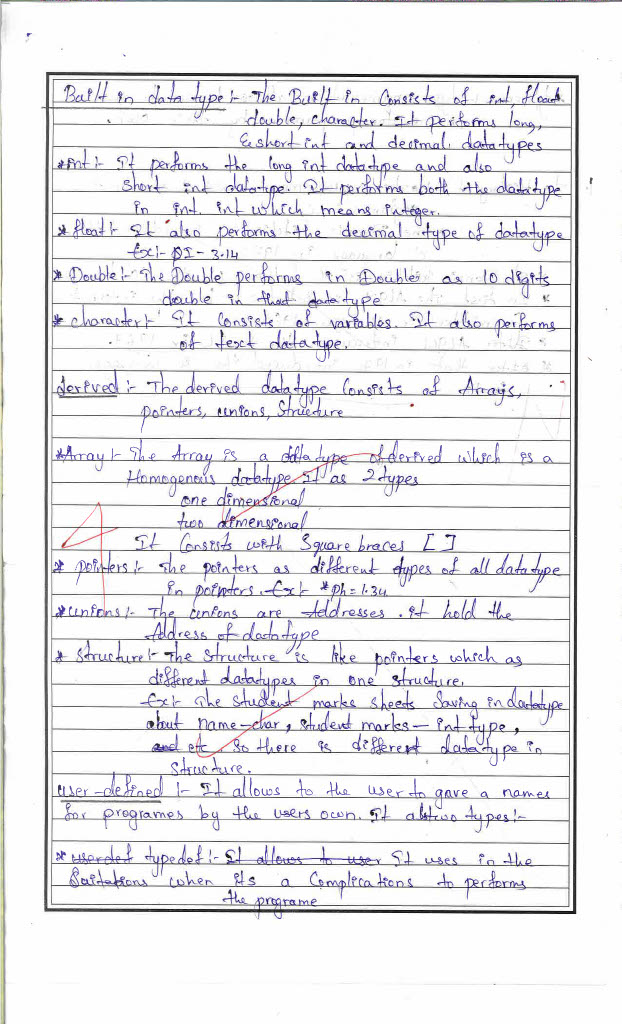 Built in data type :- The Built in Consists of int, float
double, character. It performs long,
& short int and decimal datatypes
* int :- It performs the long int datatype and also
short int datatype. It performs both the datatype
in int. int which means integer.
* float :- It also performs the decimal type of datatype
Ex:- PI - 3.14
* Double :- The Double performs in Doubles as 10 digits
double in that data type
* character :- It Consists of variables. It also performs
of text datatype.
derived :- The derived datatype Consists of Arrays,
pointers, unions, Structure
* Array :- The Array is a data type of derived which is a
Homogenous datatype It as 2 types
one dimensional
two dimensional
It Consists with Square braces [ ]
4
* pointers :- The pointers as different types of all data type
in pointers. Ex:- *ph = 1.34
* unions :- The unions are Addresses. it hold the
Address of datatype
* Structure :- The Structure is like pointers which as
different datatypes in one structure.
Ex:- The student marks sheets Saving in datatype
about name - char, student marks - int type,
and etc. So there is different data type in
Structure.
user-defined :- It allows to the user to gave a names
for programes by the users own. It as two types :-
* userdef typedef :- It allows to user It uses in the
when its a Complications to performs
the programe